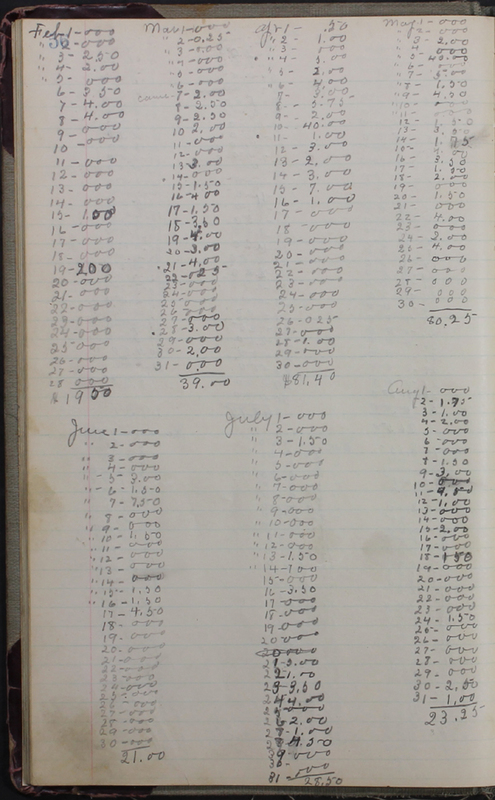 Feb 1 - 000
" 2 - 000
" 3 - 2.50
" 4 - 2.00
" 5 - 000
6 - 3.50
7 - 4.00
8 - 4.00
9 - 000
10 - 000
11 - 000
12 - 000
13 - 000
14 - 000
15 - 1.00
16 - 000
17 - 000
18 - 000
19 - 200
20 - 000
21 - 000
22 - 000
23 - 000
24 - 000
25 - 000
26 - 000
27 - 000
28 000
$19 00
Mar 1 - 000
2 - 0.25
3 - 0.00
4 - 000
" 5 - 000
" 6 - 000
7 - 2.00
8 - 2.50
9 - 2.50
10 2.00
11 - 000
12 - 000
13 - 3.00
14 - 000
15 - 1.50
16 - 4.00
17 - 1.50
18 - 3.50
19 - 4.00
20 - 3.00
21 - 4.00
22 - 0 25
23 - 000
24 - 000
25 - 000
26 - 000
27 - 000
28 - 3.00
29 - 000
30 - 2.00
31 - 0.00
39.00
Apr 1 - .50
" 2 - 1.00
" 3 - 000
" 4 - 3.00
" 5 - 2.00
" 6 - 4.00
8 - 5.75
9 - 2.00
10 - 40.00
11 - 1.00
12 - 3.00
13 - 2.00
14 - 3.00
15 - 7.00
16 - 1.00
17 - 000
18 - 000
19 - 000
20 - 000
21 - 000
22 - 000
23 - 000
24 - 000
25 - 000
26 - 025
27 - 000
28 - 1.00
29 - 000
30 - 000
$81,40
May 1 - 000
" 2 - 000
" 3 - 2.00
" 4 - 000
" 5 - 40.00
" 6 - 000
" 7 - 5.00
" 8 - 1.50
" 9 - 4.50
10 - 000
11 - 000
12 - 1.50
14 - 1.75
16 - 3.50
17 - 1.50
18 - 2.00
19 - 000
20 - 1.50
21 - 000
22 - 4.00
23 - 000
24 - 2.00
25 - 4.00
26 - 000
27 - 000
28 - 000
29 - 000
30 - 000
80.25
June 1 - 000
" 2 - 000
" 3 - 000
" 4 - 000
" 5 3.00
" 6 - 1.50
" 7 - 7.50
" 8 - 000
" 9 - 000
" 10 - 1.50
" 11 - 000
" 12 - 000
" 13 - 000
" 14 - 000
" 15 - 1.50
" 16 - 1.50
17 - 4.50
18 - 000
19 - 000
20 - 000
21 - 000
22 - 000
23 - 000
24 - 000
25 - 000
26 - 000
27 - 000
28 - 000
29 - 000
30 - 000
21.00
July 1 - 000
" 2 - 000
" 3 - 1.50
" 4 - 000
" 5 - 000
" 6 - 000
" 7 - 000
" 8 - 000
" 9 - 000
" 10 - 000
" 11 - 000
" 12 - 000
" 13 - 1.50
" 14 - 1 00
15 - 000
16 - 3.50
17 - 000
18 - 000
19 - 000
20 000
31 - 000
28.50
Aug 1 - 000
2 - 1.75
3 - 1.00
4 - 2.00
5 - 000
6 - 000
7 - 000
8 - 1.50
9 - 3.00
10 - 000
12 - 1.00
13 - 000
14 - 000
15 - 2.00
16 - 000
17 - 000
18 - 1 50
19 - 000
20 - 000
21 - 000
22 - 000
23 - 000
24 - 1.50
25 - 000
26 - 000
27 - 000
28 - 000
29 - 000
30 - 2,50
31 - 1,00
23.25